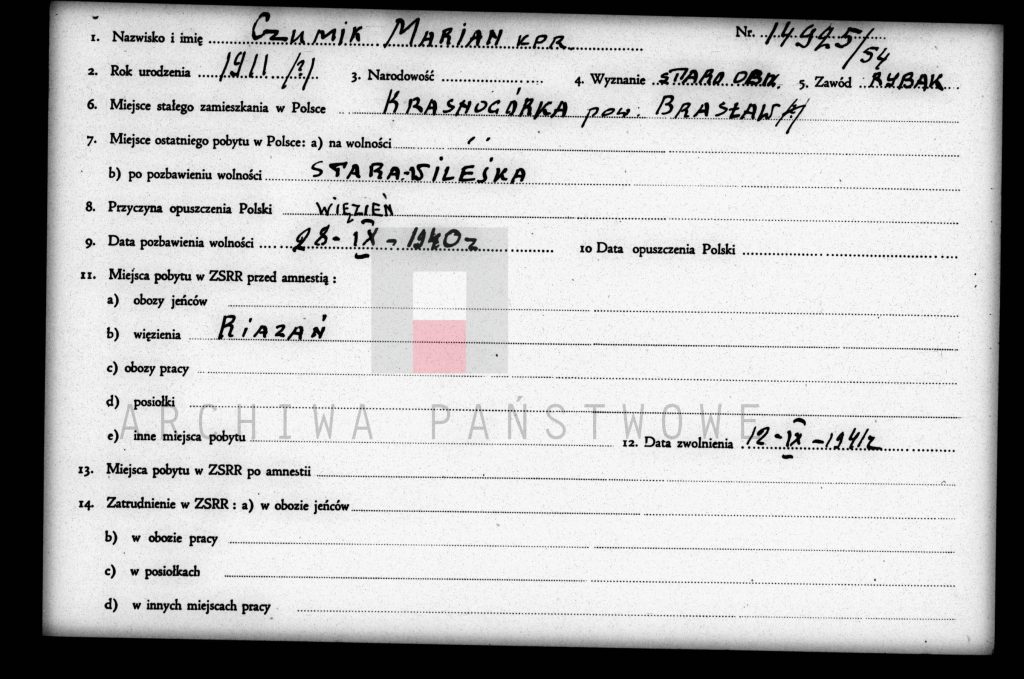 1. Nazwisko i imię CZUMIK MARIAN KPR. Nr. 14925/54
2. Rok urodzenia 1911 /?/ 3. Narodowość 4. Wyznanie STARO OBRZ. 5. Zawód RYBAK
6. Miejsce stałego zamieszkania w Polsce KRASNOGÓRKA pow. BRASŁAW /?/
7. Miejsce ostatniego pobytu w Polsce: a) na wolności
b) po pozbawieniu wolności STARA-WILEJKA
8. Przyczyna opuszczenia Polski WIĘZIEŃ
9. Data pozbawienia wolności 28-IX-1940 r 10 Data opuszczenia Polski
11. Miejsca pobytu w ZSRR przed amnestią:
a) obozy jeńców
b) więzienia RIAZAŃ
c) obozy pracy
d) posiołki
ARCHIWA PAŃSTWOWE
e) inne miejsca pobytu 12. Data zwolnienia 12-IX-1941 r
13. Miejsca pobytu w ZSRR po amnestii
14. Zatrudnienie w ZSRR: a) w obozie jeńców
b) w obozie pracy
c) w posiołkach
d) w innych miejscach pracy